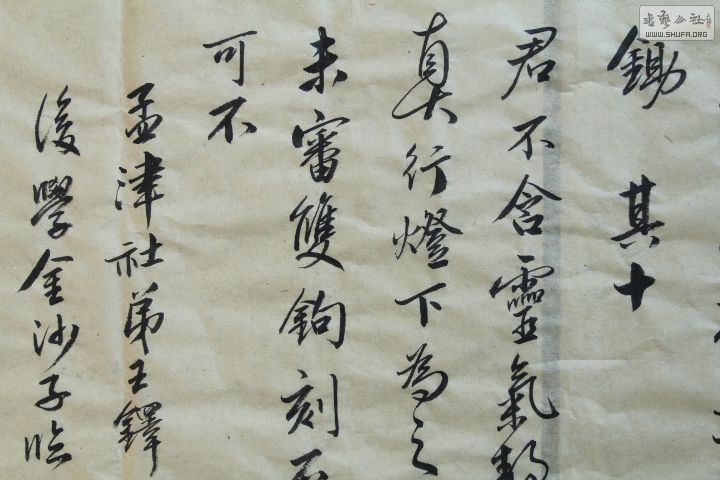 鋤 其十
君不含靈氣
真行燈下為之
未審雙鉤刻石
可不
孟津社弟王鐸
後學金沙子臨
书艺公社
WWW.SHUFA.ORG